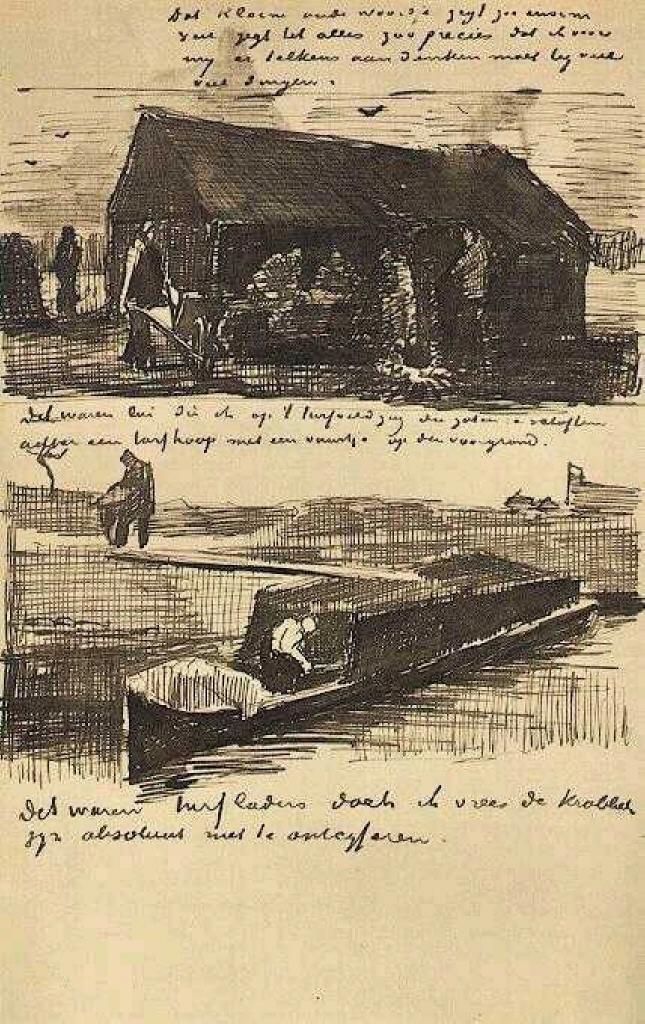 Dat kleine oude woordje zegt zoo enorm
veel zegt het alles zoo precies dat ik voor
my er telkens aan denken moet by veel
veel dingen.
Det waren lui die ik op 't turfveld zag die zaten
achter een turfhoop met een vuurtje op den voorgrond.
Det waren turfladers doch ik vrees de krabbels
zyn absoluut niet te ontcyferen.